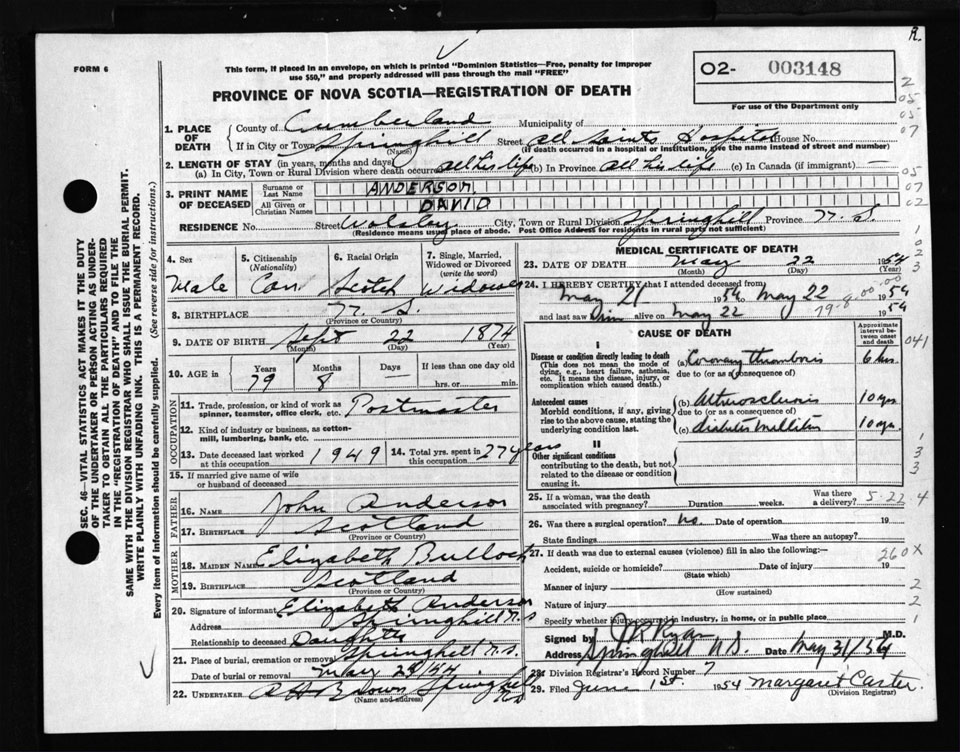 R.
FORM 6
This form, if placed in an envelope, on which is printed "Dominion Statistics—Free, penalty for improper
use $50," and properly addressed will pass through the mail "FREE"
02- 003148
For use of the Department only
PROVINCE OF NOVA SCOTIA—REGISTRATION OF DEATH
1. PLACE OF DEATH
County of Cumberland Municipality of
If in City or Town Springhill Street All Saints Hospital House No.
(Name) (If death occurred in a hospital or institution, give the name instead of street and number)
2. LENGTH OF STAY (in years, months and days)
(a) In City, Town or Rural Division where death occurred all his life (b) In Province all his life (c) In Canada (if immigrant) —
3. PRINT NAME OF DECEASED
Surname or Last Name ANDERSON
All Given or Christian Names DAVID
RESIDENCE No. Street Wolsley City, Town or Rural Division Springhill Province N.S.
(Residence means usual place of abode. Post Office Address for residents in rural parts not sufficient)
4. Sex Male
5. Citizenship (Nationality) Can
6. Racial Origin Scotch
7. Single, Married, Widowed or Divorced (write the word) Widower
8. BIRTHPLACE N.S.
(Province or Country)
9. DATE OF BIRTH Sept 22 1874
(Month) (Day) (Year)
10. AGE in Years 79 Months 8 Days — If less than one day old
hrs. or min.
OCCUPATION
11. Trade, profession, or kind of work as spinner, teamster, office clerk, etc. Postmaster
12. Kind of industry or business, as cotten-mill, lumbering, bank, etc.
13. Date deceased last worked at this occupation 1949
14. Total yrs. spent in this occupation 27 years
15. If married give name of wife or husband of deceased
FATHER
16. NAME John Anderson
17. BIRTHPLACE Scotland
(Province or Country)
MOTHER
18. MAIDEN NAME Elizabeth Bulloch
19. BIRTHPLACE Scotland
(Province or Country)
20. Signature of informant Elizabeth Anderson
Address Springhill N.S
Relationship to deceased Daughter
21. Place of burial, cremation or removal Springhill N.S.
Date of burial or removal May 24/54
22. UNDERTAKER A H Brown Springhill NS
(Name and address)
MEDICAL CERTIFICATE OF DEATH
23. DATE OF DEATH May 22 1954
(Month) (Day) (Year)
24. I HEREBY CERTIFY that I attended deceased from
May 21 1954 to May 22 1954
and last saw him alive on May 22 1954
79-8-00-00.00
CAUSE OF DEATH
Approximate interval between onset and death
I
Disease or condition directly leading to death
(This does not mean the mode of dying, e.g., heart failure, asthma, etc. It means the disease, injury, or complication which caused death.)
(a) Coronary thrombosis 6 hrs.
due to (or as a consequence of)
Antecedent causes
Morbid conditions, if any, giving rise to the above cause, stating the underlying condition last.
(b) Atherosclerosis 10 yrs
due to (or as a consequence of)
(c) diabetes mellitus 10 yrs.
II
Other significant conditions
contributing to the death, but not related to the disease or condition causing it.
25. If a woman, was the death associated with pregnancy? Duration weeks. Was there a delivery? 5-22-4
26. Was there a surgical operation? no. Date of operation 19
State findings Was there an autopsy?
27. If death was due to external causes (violence) fill in also the following: 260X
Accident, suicide or homicide? Date of injury 19
(State which)
Manner of injury
(How sustained)
Nature of injury
Specify whether injury occurred in industry, in home, or in public place
Signed by Ryan M.D.
Address Springhill N.S. Date May 31/54
28. Division Registrar's Record Number 7
29. Filed June 1st. 1954 Margaret Carter
(Division Registrar)
SEC. 46—VITAL STATISTICS ACT MAKES IT THE DUTY
OF THE UNDERTAKER OR PERSON ACTING AS UNDER-
TAKER TO OBTAIN ALL THE PARTICULARS REQUIRED
IN THE "REGISTRATION OF DEATH" AND TO FILE THE
SAME WITH THE DIVISION REGISTRAR WHO SHALL ISSUE THE BURIAL PERMIT.
WRITE PLAINLY WITH UNFADING INK. THIS IS A PERMANENT RECORD.
Every item of information should be carefully supplied. (See reverse side for instructions.)
2
05
05
07
05
07
02
1
02
3
041
1
3
3
2
2
1